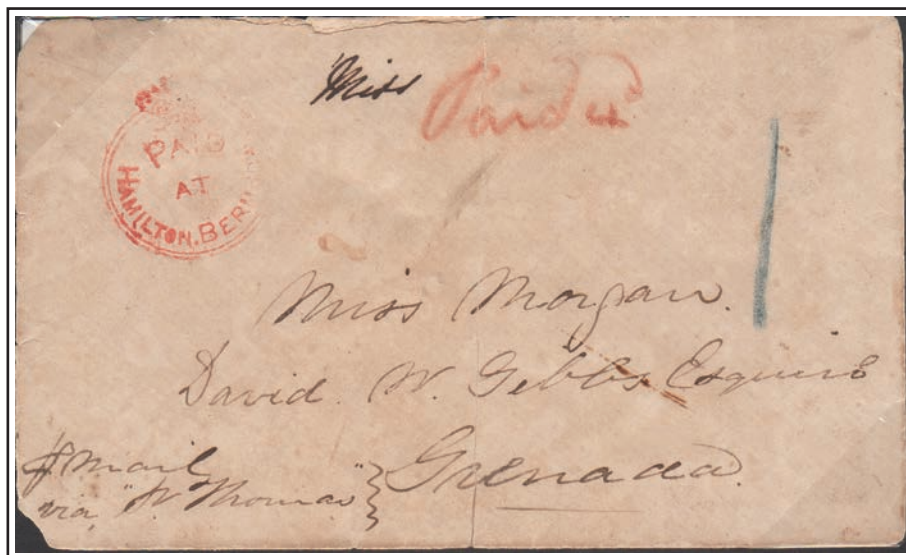 Miss
Paid 4
PAID
AT
HAMILTON. BERM
Miss Morgan.
David. W. Gibbs, Esquire
Grenada.
p mail
via "St Thomas"
1